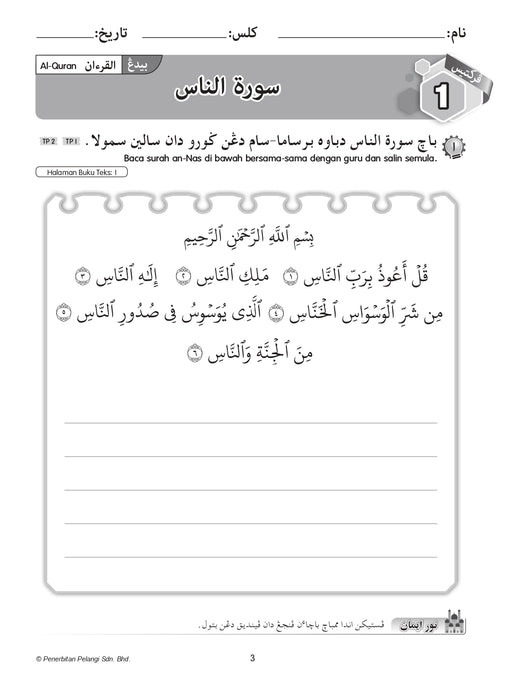 نام:.................... کلس:.................... تاريخ:....................
ڤرکتيس 1
بيدڠ القرءان Al-Quran
سورة الناس
١ باچ سورة الناس دباوه برساما-سام دڠن ݢورو دان سالين سمولا. TP 1 TP 2
Baca surah an-Nas di bawah bersama-sama dengan guru dan salin semula.
Halaman Buku Teks: 1
بِسْمِ ٱللَّهِ ٱلرَّحْمَٰنِ ٱلرَّحِيمِ
قُلْ أَعُوذُ بِرَبِّ ٱلنَّاسِ ١ مَلِكِ ٱلنَّاسِ ٢ إِلَٰهِ ٱلنَّاسِ ٣
مِن شَرِّ ٱلْوَسْوَاسِ ٱلْخَنَّاسِ ٤ ٱلَّذِي يُوَسْوِسُ فِي صُدُورِ ٱلنَّاسِ ٥
مِنَ ٱلْجِنَّةِ وَٱلنَّاسِ ٦
نور ايمان ڤستيکن اندا ممباچ باچاءن ڤنجڠ دان ڤينديق دڠن بتول.
© Penerbitan Pelangi Sdn. Bhd. 3